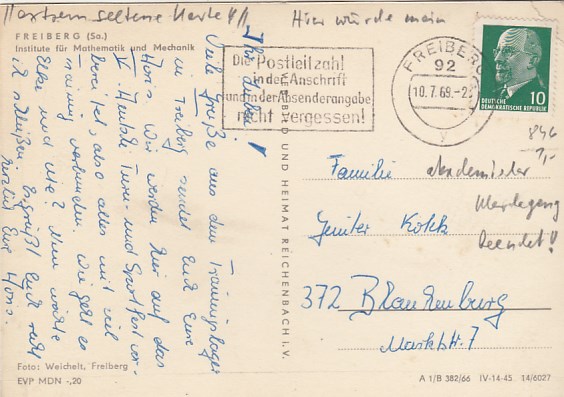 Hier würde mein
FREIBERG (Sa.)
Institut für Mathematik und Mechanik
Ihr Lieben!
Viele Grüße aus dem Trainingslager
in Freiberg sendet Euch Eure
Horst. Wir werden hier auf das
V. Turn- und Sportfest vor-
bereitet, also alles mit viel
Training verbunden. Wie geht es
Elke und
ich schließen. Es grüßt Euch recht
herzlich Eure
Foto: Weichelt, Freiberg
EVP MDN -,20
BILD UND HEIMAT REICHENBACH I. V.
Die Postleitzahl
in der Anschrift
und in der Absenderangabe
nicht vergessen!
FREIBERG
92
10.7.69.-2
y
10
DEUTSCHE
DEMOKRATISCHE REPUBLIK
846
1,-
Familie
Günter Kokk
372 Blankenburg
Marktstr. 7
akademischer
Werdegang
beendet!
A 1/B 382/66 IV-14-45 14/6027